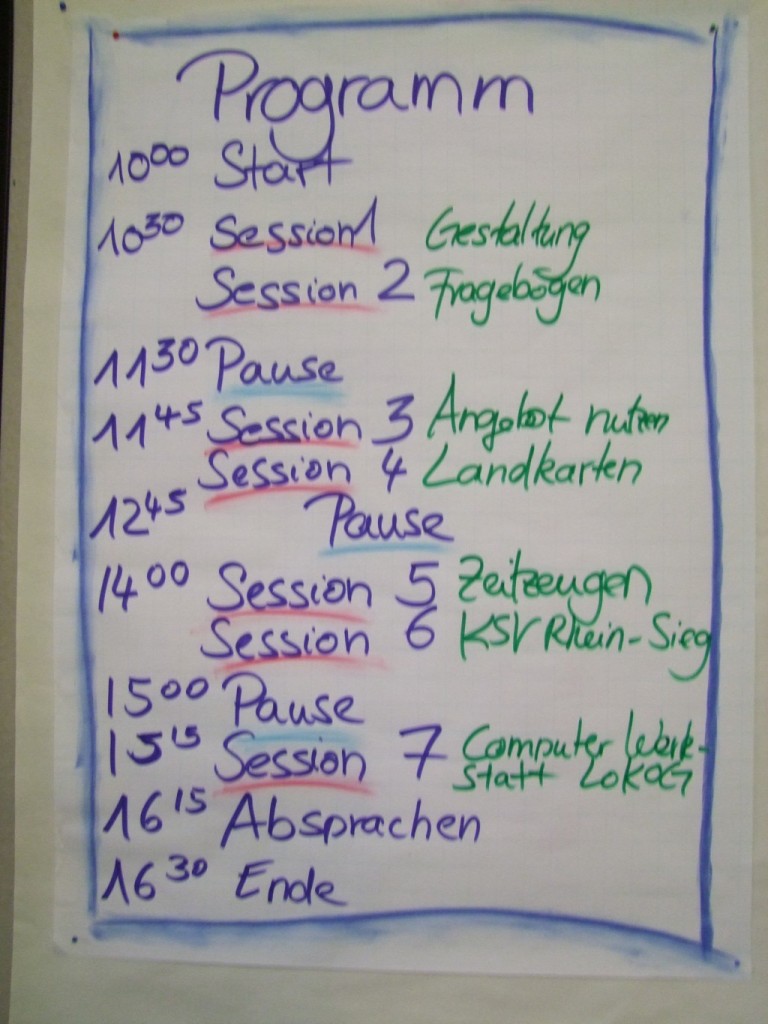 Programm
10⁰⁰ Start
10³⁰ Session 1 Gestaltung
Session 2 Fragebögen
11³⁰ Pause
11⁴⁵ Session 3 Angebot nutzen
Session 4 Landkarten
12⁴⁵ Pause
14⁰⁰ Session 5 Zeitzeugen
Session 6 KSV Rhein-Sieg
15⁰⁰ Pause
15¹⁵ Session 7 Computer Werk-
statt LoKoG
16¹⁵ Absprachen
16³⁰ Ende